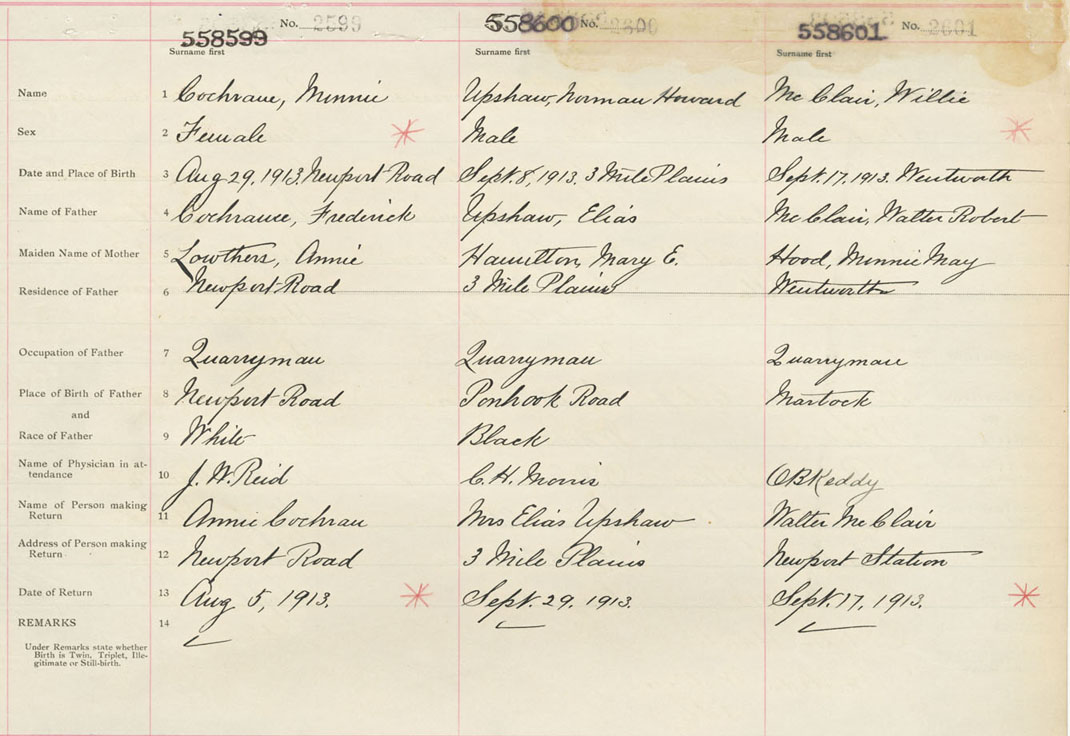 No. 2599 No. 2600 No. 2601
558599 558600 558601
Surname first Surname first Surname first
Name 1 Cochrane, Minnie Upshaw, Norman Howard Mc Clair, Willie
Sex 2 Female Male Male
Date and Place of Birth 3 Aug 29, 1913. Newport Road Sept. 8, 1913. 3 Mile Plains Sept. 17, 1913. Wentworth
Name of Father 4 Cochrane, Frederick Upshaw, Elias Mc Clair, Walter Robert
Maiden Name of Mother 5 Lowthers, Annie Hamilton, Mary E. Hood, Minnie May
Residence of Father 6 Newport Road 3 Mile Plains Wentworth
Occupation of Father 7 Quarryman Quarryman Quarryman
Place of Birth of Father 8 Newport Road Ponhook Road Martock
and
Race of Father 9 White Black
Name of Physician in at-
tendance 10 J. W. Reid C. H. Morris O B Keddy
Name of Person making
Return 11 Annie Cochran Mrs Elias Upshaw Walter Mc Clair
Address of Person making
Return 12 Newport Road 3 Mile Plains Newport Station
Date of Return 13 Aug 5, 1913. Sept. 29, 1913. Sept. 17, 1913.
REMARKS 14
Under Remarks state whether
Birth is Twin, Triplet, Ille-
gitimate or Still-birth.